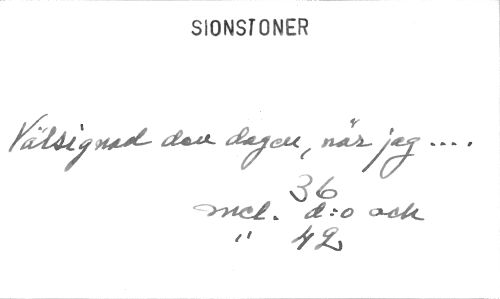 SIONSTONER
Välsignad den dagen, när jag ....
36
mel. d:o och
" 42